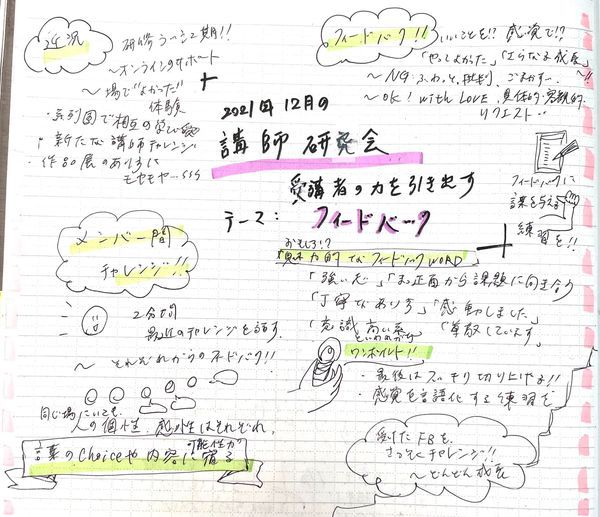 近況
研修ラッシュ期!!
〜オンラインのサポート
〜場で"よかった"
体験
・系列園で相互の学び愛
・新たな講師チャレンジ
・作品展のあり方に
モヤモヤ…
2021年12月の
講師研究会
受講者の力を引き出す
テーマ: フィードバック
フィードバック!!
いいことを!? 感覚で!?
「やってよかった」「さらなる成長」
〜NG:ふわっと,批判,ごまかす…
〜OK! with LOVE,具体的・客観的・
リクエスト…
フィードバックに
課題を与える
練習を!!
メンバー間
チャレンジ!!
2分間
最近のチャレンジを話す
〜それぞれからのフィードバック!!
同じ場にいても
人の個性・感性はそれぞれ,
言葉のChoiceや内容に可能性が宿る
おもしろ!?
「魅力的なフィードバックWORD」
「強い心」「真正面から課題に向き合う」
「丁寧であり方」「感動しました」
「意識高い系」「尊敬しています」
といわれたが
ワンポイント!!
・最後はスッキリ切り上げよ!!
・感覚を言語化する練習を
受けたFBを、
さっそくチャレンジ!!
〜どんどん成長